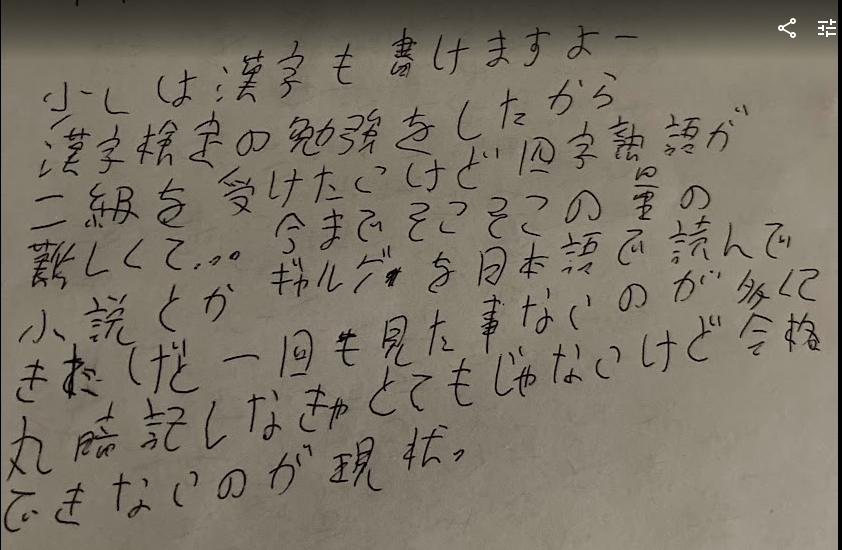 少しは漢字も書けますよー
漢字検定の勉強をしたから
二級を受けたいけど四字熟語が
難しくて... 今までそこそこの量の
小説とかギャルゲを日本語で読んで
きたけど一回も見た事ないのが多くて
丸暗記しなきゃとてもじゃないけど合格
できないのが現状。